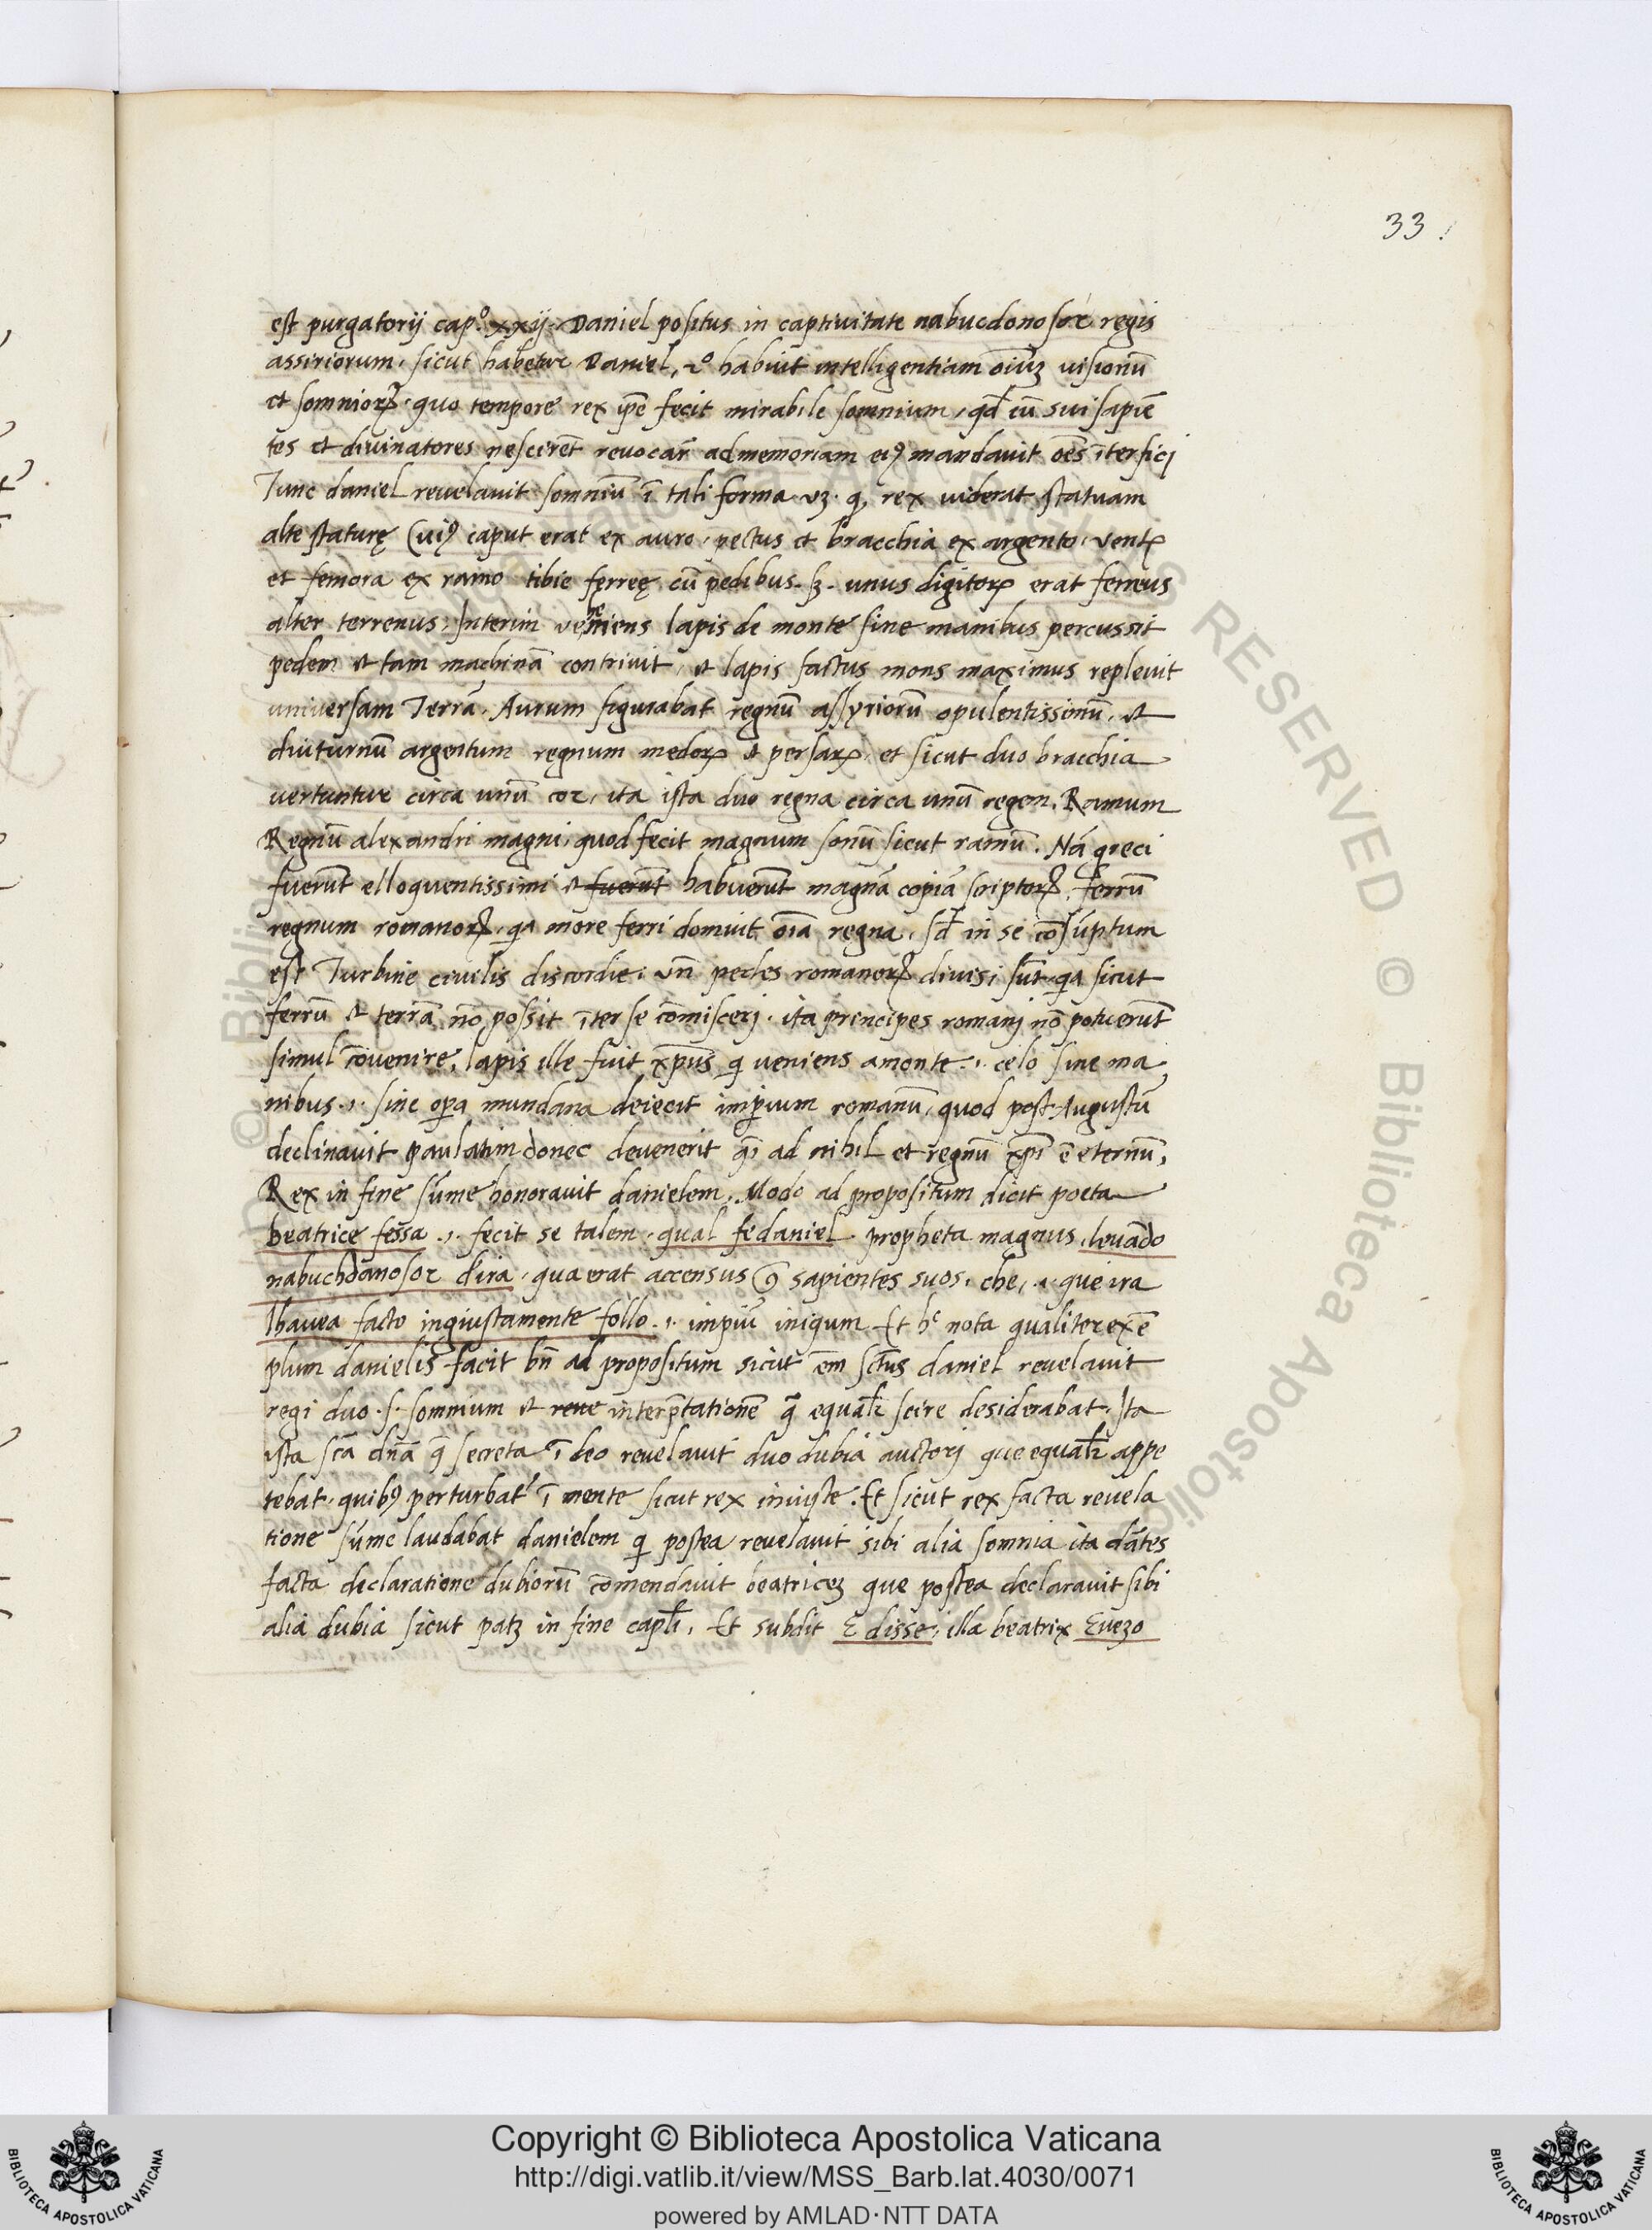 33.
est purgatorij cap.º xxij. Daniel positus in captivitate nabucdonosor regis
assiriorum. sicut habetur Daniel, 2º habuit intelligentiam oiuz visionũ
et somnioꝝ. quo tempore rex ip̃e fecit mirabile somnium, qđ cũ sui sapiẽ
tes et divinatores nescirẽt revocar̃ ad memoriam eiꝰ mandavit oẽs ĩterfici
Tunc daniel revelavit somniũ ĩ tali forma vꝫ. ꝙ rex viderat statuam
alte staturę Cuiꝰ caput erat ex auro, pectus et bracchia ex argento, vent̃
et femora ex ramo tibie ferreę cũ pedibus. sꝫ. unus digitoꝝ erat ferreus
alter terrenus. Interim veniens lapis de monte sine manibus percussit
pedem et tam machinã contrivit, et lapis factus mons maximus replevit
universam Terrã. Aurum figurabat regnũ assyriorũ opulentissimũ. et
diuturnũ argentum regnum medoꝝ et persaꝝ. et sicut duo bracchia
vertuntur circa unũ cor, ita ista duo regna circa unũ regem. Ramum
Regnũ alexandri magni, quod fecit magnum sonũ sicut ramũ. Nã greci
fuerũt elloquentissimi et fuerũt habuerũt magnã copiã scriptoꝝ. ferrũ
regnum romanoꝝ. qa more ferri domuit oĩa regna. sđ in se cõsũptum
est Turbine civilis discordie. vñ pedes romanoꝝ divisi sũt. qa sicut
ferrũ et terrã nõ possit ĩter se cõmisceri. ita principes romani nõ potuerũt
simul cõvenire, lapis ille fuit xp̃us q̃ veniens a monte .i. celo sine ma
nibus .i. sine oꝑa mundana deiecit imꝑium romanũ, quod post Augustũ
declinavit paulatim donec devenerit q̃i ad nihil et regnũ xp̃i ẽ eternũ,
Rex in fine sũme honoravit danielem. Modo ad propositum dicit poeta
beatrice fessa .i. fecit se talem. qual fe daniel propheta magnus. levãdo
nabuchdanosor d'ira, qua erat accensus ꝯ sapientes suos. che, .i. que ira
lhavea facto ingiustamente follo .i. impiũ iniqum. Et hᶜ nota qualiter exẽ
plum danielis facit bñ ad propositum sicut em̃ sctũs daniel revelavit
regi duo .s. somnium et reve interp̃tationẽ q̃ equalr̃ scire desiderabat. Ita
ista scã dñã q̃ secreta ĩ deo revelavit duo dubia auctori que equalr̃ appe
tebat. quibꝰ perturbat̃ ĩ mente sicut rex iniuste. Et sicut rex facta revela
tione sũme laudabat danielem q̃ postea revelavit sibi alia somnia ita dãtes
facta declaratione dubiorũ cõmendavit beatricez que postea declaravit sibi
alia dubia sicut patꝫ in fine capl̃i. Et subdit E disse, illa beatrix Evezo
Copyright © Biblioteca Apostolica Vaticana
http://digi.vatlib.it/view/MSS_Barb.lat.4030/0071
powered by AMLAD·NTT DATA